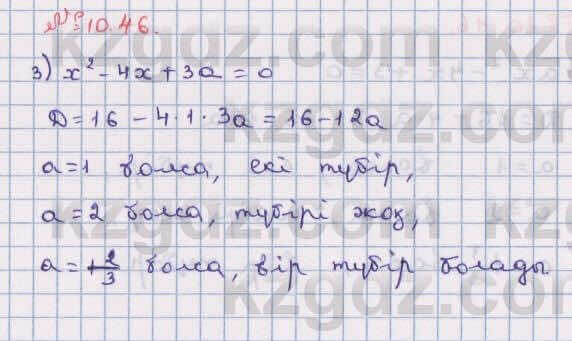 №10.46.
3) x² - 4x + 3a = 0
D = 16 - 4·1·3a = 16 - 12a
a = 1 болса, екі түбір,
a = 2 болса, түбірі жоқ,
a = 1 1/3 болса, бір түбір болады
kzgdz.com